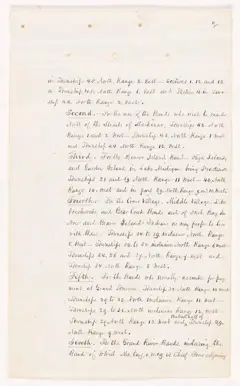 in Township 42 North Range 2 West – Sections 1, 12 and 13
in Township North Range 1 West and Section 12 in Town
ship 42 North Range 2 West.
Second. For the use of the Bands who wish to reside
North of the Straits of Mackinac, Townships 42 North
Range 1 and 2 West – Township 43 North Range 1 West
and Township 44 North Range 12 West.
Third. For the Beaver Island Band – High Island,
and Garden Island in Lake Michigan being Fractional
Townships 38 and 39 North, Range 11 West – 40 North
Range 10 West and in part 39 North Range 9 and 10 West.
Fourth. For the Cross Village, Middle Village
and Bear Creek Bands and of such Bay du
Noc and Beaver Island Indians as may prefer to live
with them. Townships 34 to 39 inclusive North, Range
5 West – Townships 34 to 38 inclusive North Range 6 West
Townships 34, 36 and 37 North Range 7 West and
Township 34 North Range 8 West.
Fifth. For the Bands who usually assemble for pay
ment at Grand Traverse. Township 29 North Range 10 West
Townships 29 to 32 North inclusive Range 11 West –
Townships 29 to 31 North inclusive Range 12 West –
Township 29 North Range 13 West and Township
North Range 9 West.
Sixth. For the Grand River Bands including the
Band of which